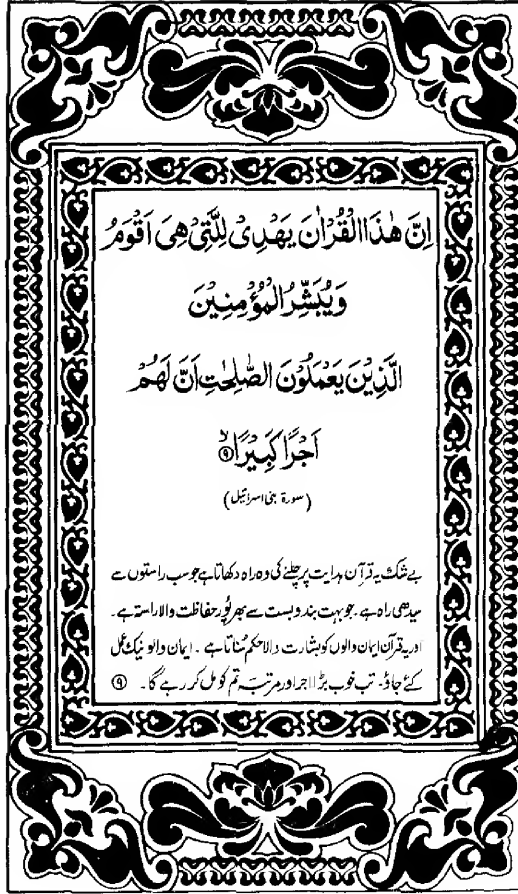 اِنَّ هٰذَا الْقُرْاٰنَ يَهْدِیْ لِلَّتِیْ هِیَ اَقْوَمُ
وَيُبَشِّرُ الْمُؤْمِنِيْنَ
الَّذِيْنَ يَعْمَلُوْنَ الصّٰلِحٰتِ اَنَّ لَهُمْ
اَجْرًا كَبِيْرًا ۙ﴿۹﴾
(سورۃ بنی اسرائیل)
بے شک یہ قرآن ہدایت پر چلنے کی وہ راہ دکھاتا ہے جو سب راستوں سے
سیدھی راہ ہے۔ جو بہت بندوبست سے بھرپُور حفاظت والا راستہ ہے۔
اور یہ قرآن ایمان والوں کو بشارت والا حکم سُناتا ہے۔ ایمان والو نیک عمل
کئے جاؤ۔ تب خوب بڑا اجر اور مرتبہ تم کو مل کر رہے گا۔ ﴿۹﴾